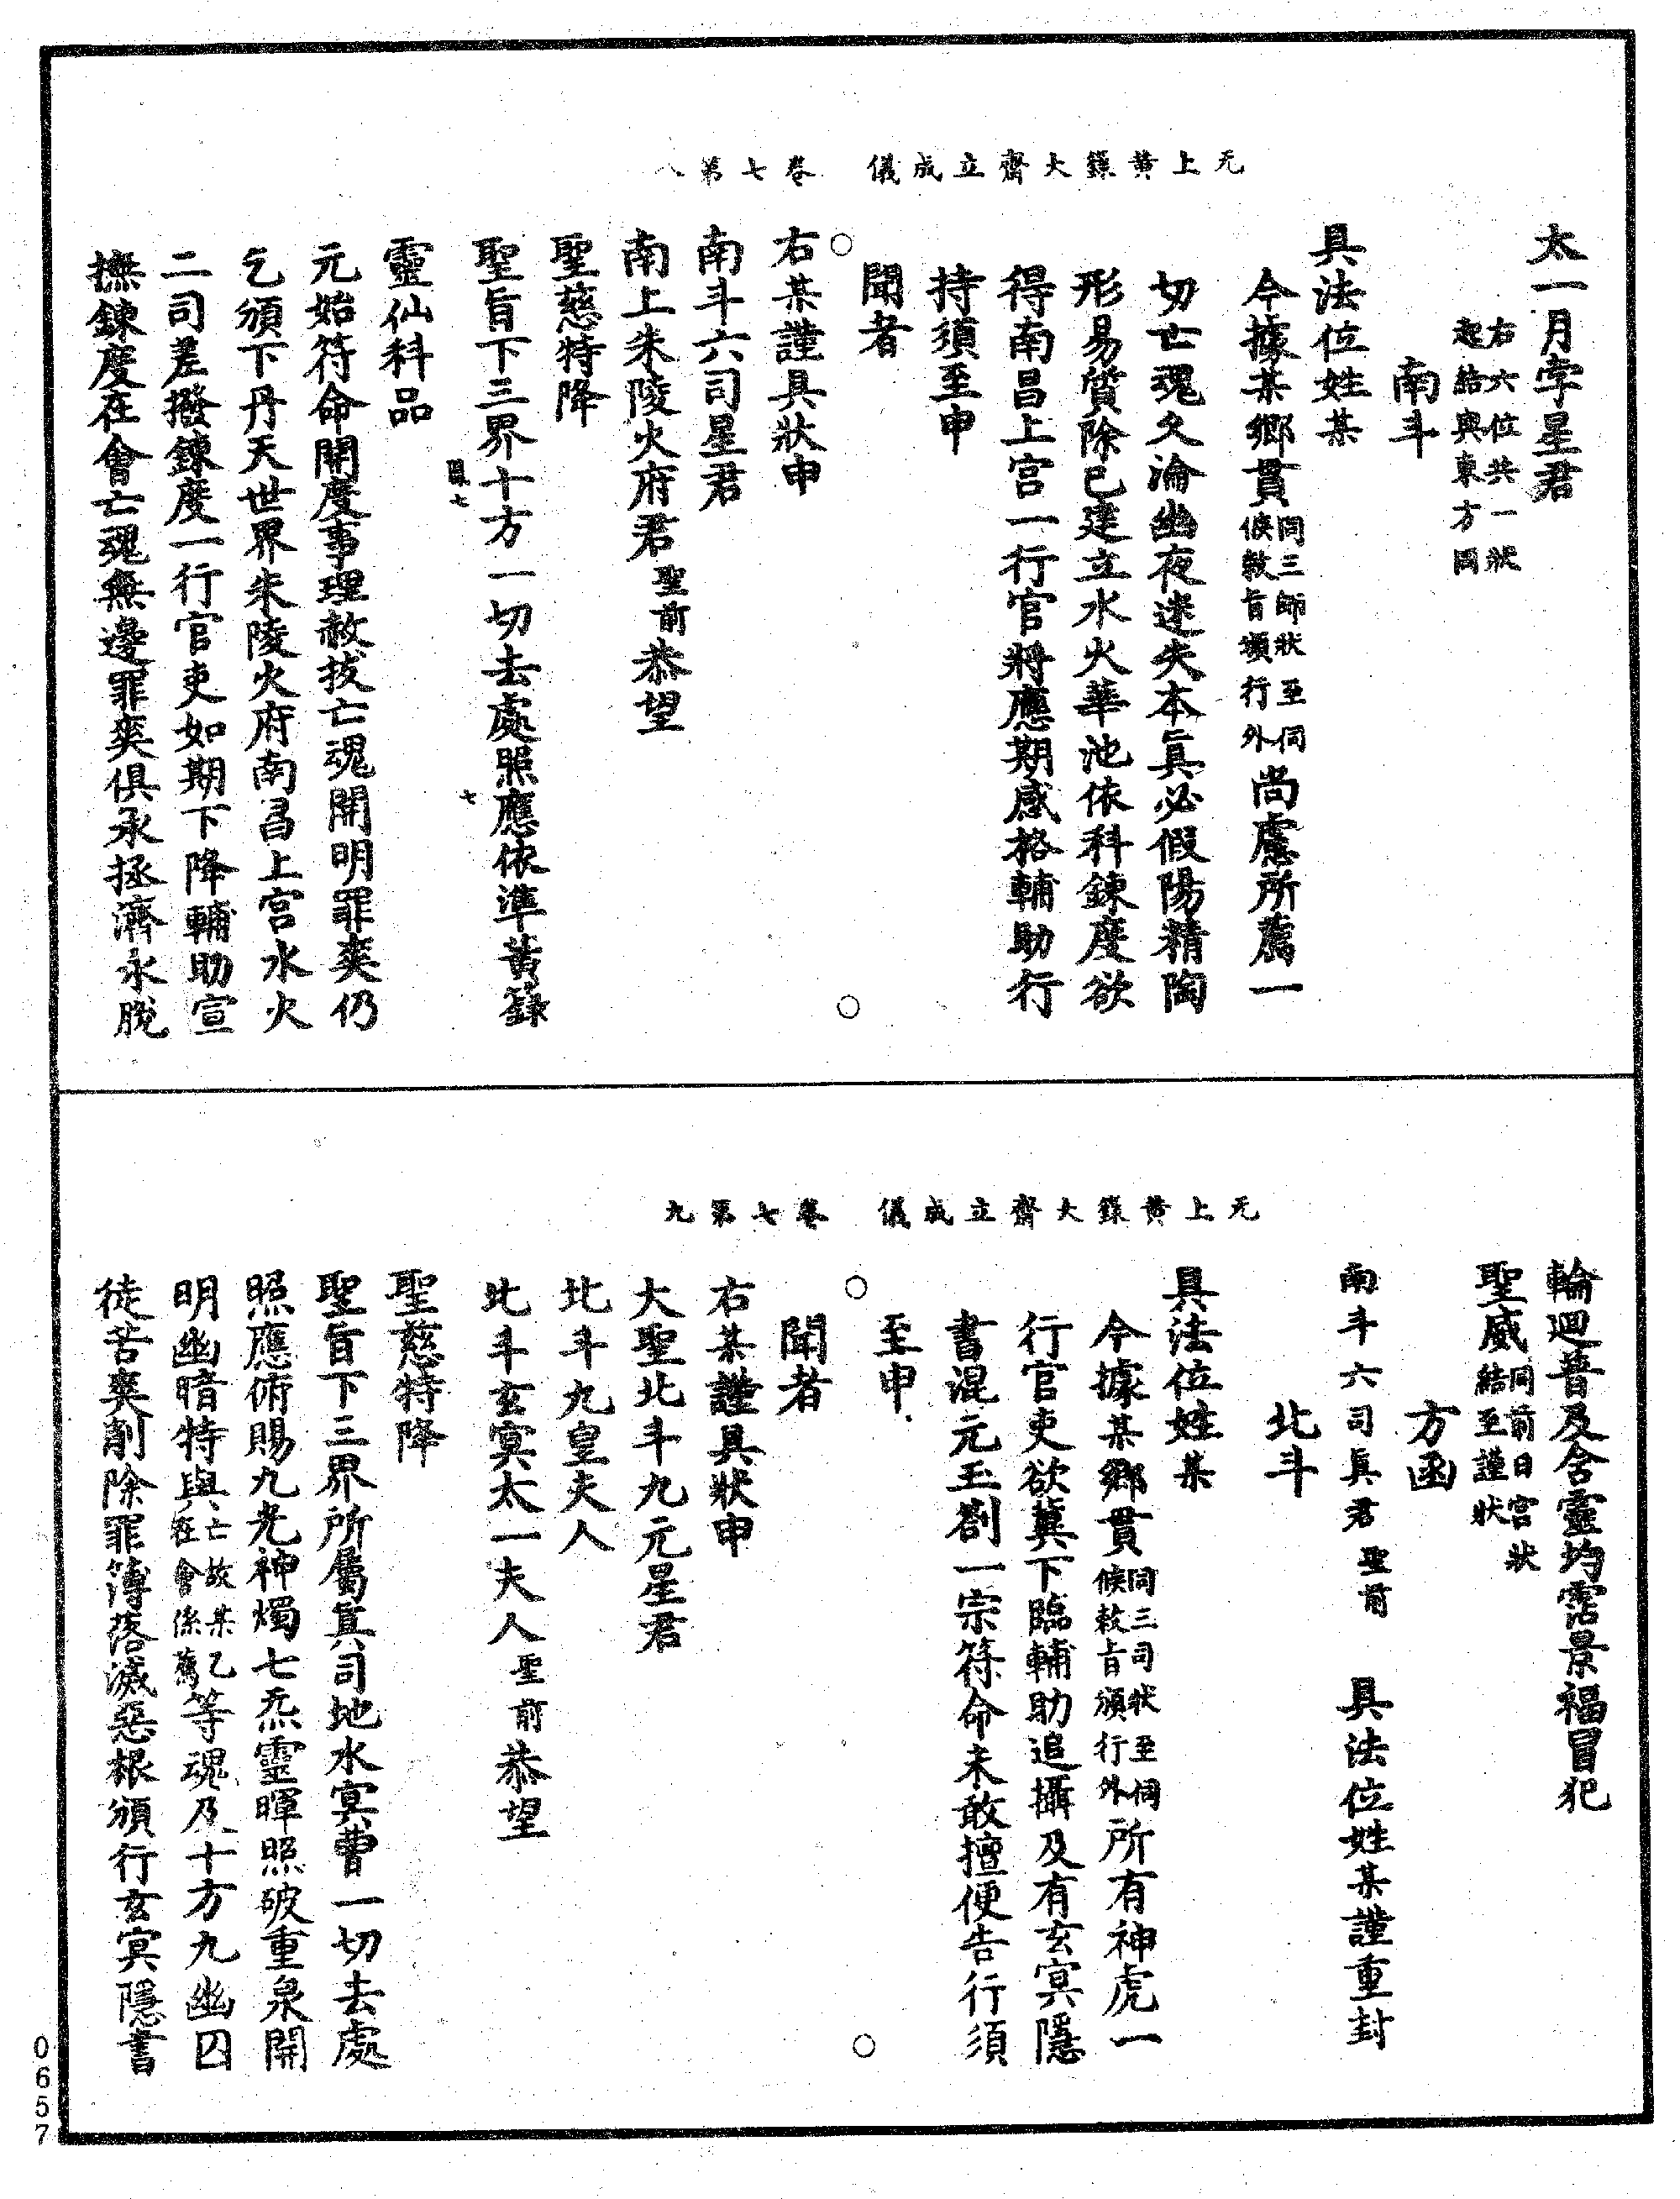 无上黃籙大齋立成儀　卷七第八
太一月孛星君
右六位共一狀
起結與東方同
南斗
具法位姓某
今據某鄉貫同三師狀至伺候敕旨頒行外尚慮所薦一
切亡魂久淪幽夜迷失本眞必假陽精陶
形易質除已建立水火華池依科鍊度欲
得南昌上宮一行官將應期感格輔助行
持須至申
聞者
右某謹具狀申
南斗六司星君
南上朱陵火府君聖前恭望
聖慈特降
聖旨下三界十方一切去處照應依準黃籙
靈仙科品
元始符命開度事理赦拔亡魂開明罪爽仍
乞頒下丹天世界朱陵火府南昌上宮水火
二司差撥鍊度一行官吏如期下降輔助宣
撫鍊度在會亡魂無邊罪爽俱承拯濟永脫
七
无上黃籙大齋立成儀　卷七第九
輪迴普及含靈均霑景福冒犯
聖威同前日宮狀結至謹狀
方函
南斗六司眞君聖前　具法位姓某謹重封
北斗
具法位姓某
今據某鄉貫同三司狀至伺候敕旨頒行外所有神虎一
行官吏欲冀下臨輔助追攝及有玄冥隱
書混元玉劄一宗符命未敢擅便告行須
至申
聞者
右某謹具狀申
大聖北斗九元星君
北斗九皇夫人
北斗玄冥太一夫人聖前恭望
聖慈特降
聖旨下三界所屬眞司地水冥曹一切去處
照應俯賜九光神燭七炁靈暉照破重泉開
明幽暗特與亡故某乙在會係薦等魂及十方九幽囚
徒苦爽削除罪簿落滅惡根頒行玄冥隱書
0657